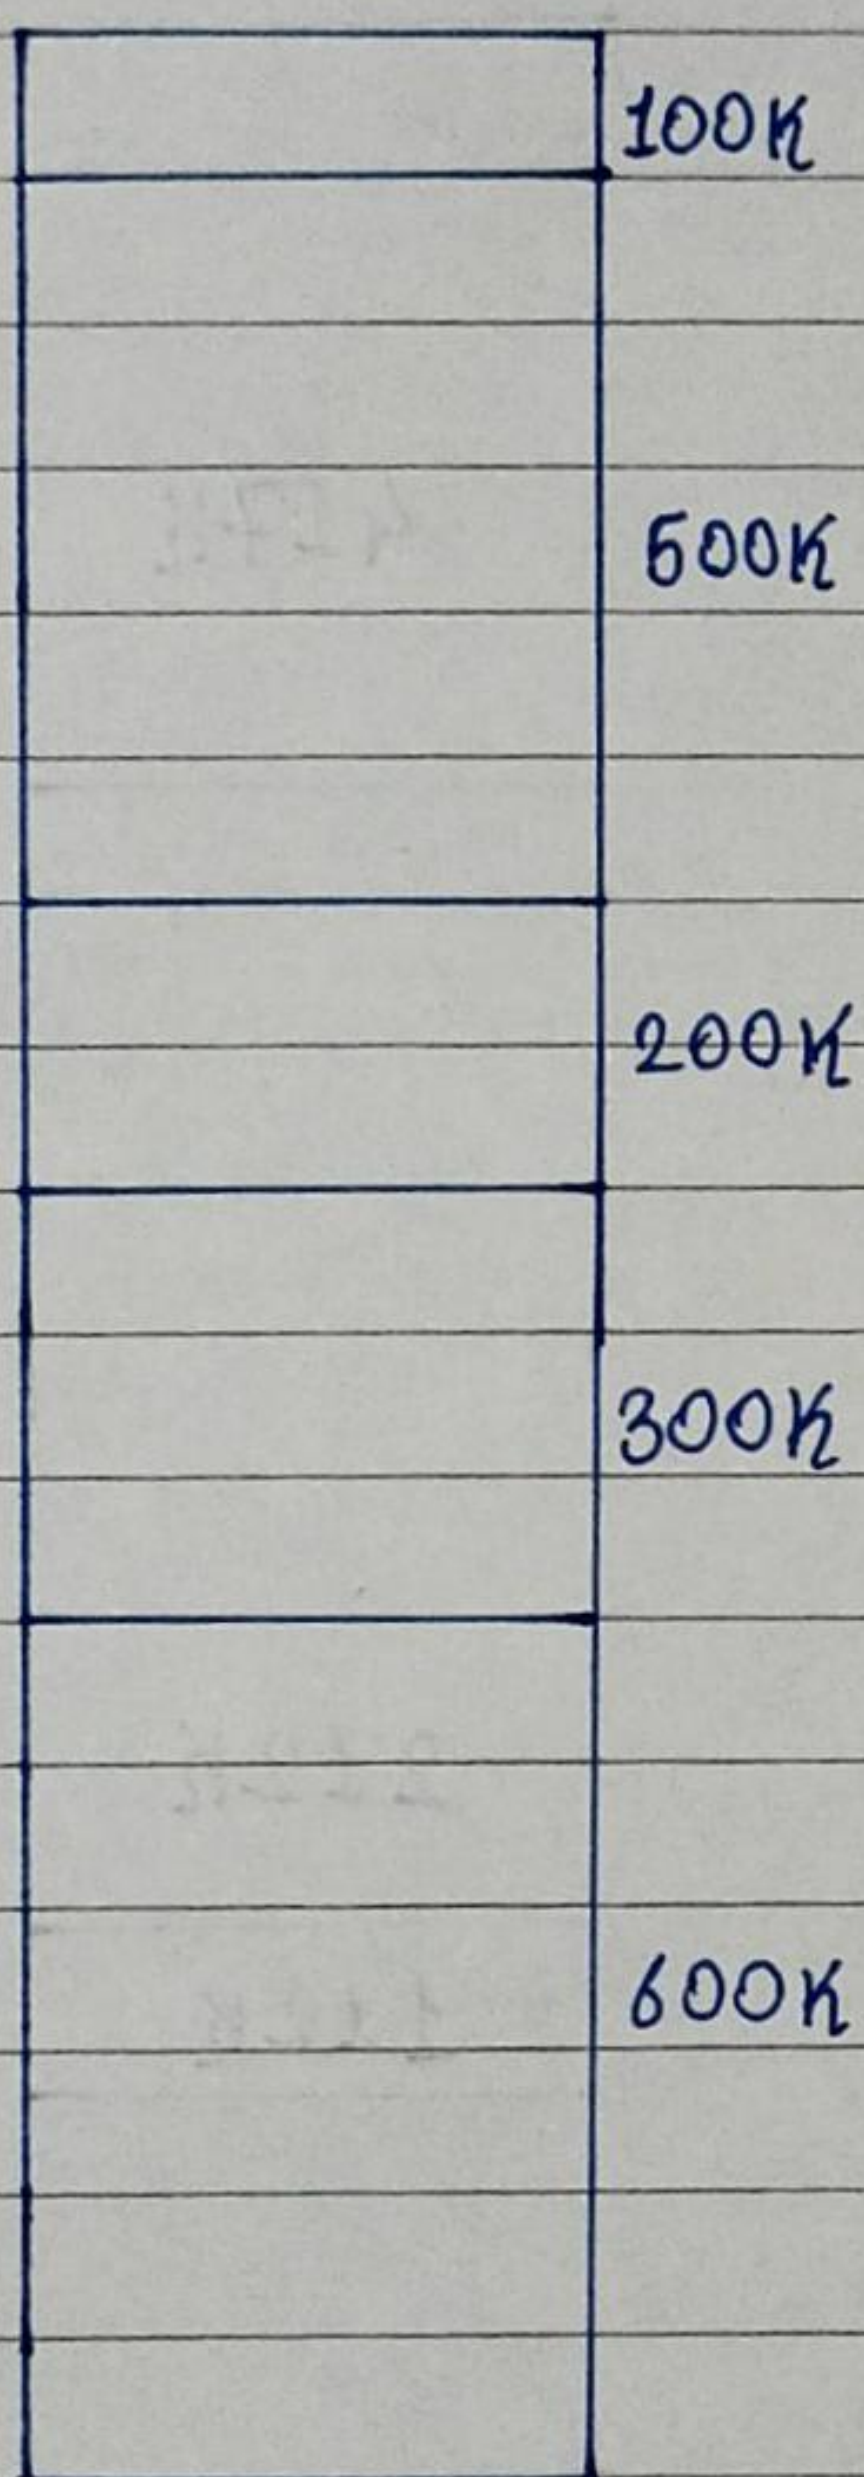 100K
500K
200K
300K
600K